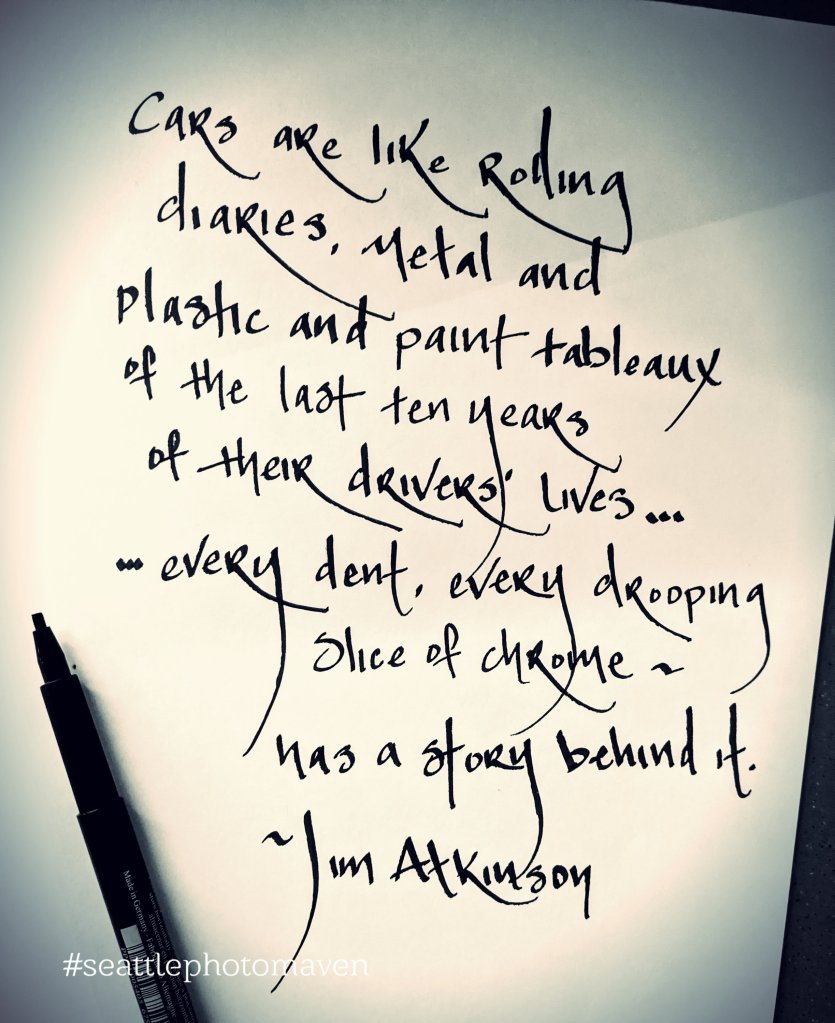 Cars are like rolling
diaries, metal and
plastic and paint tableaux
of the last ten years
of their drivers' lives...
... every dent, every drooping
slice of chrome ~
has a story behind it.
~Jim Atkinson
Made in Germany
#seattlephotomaven